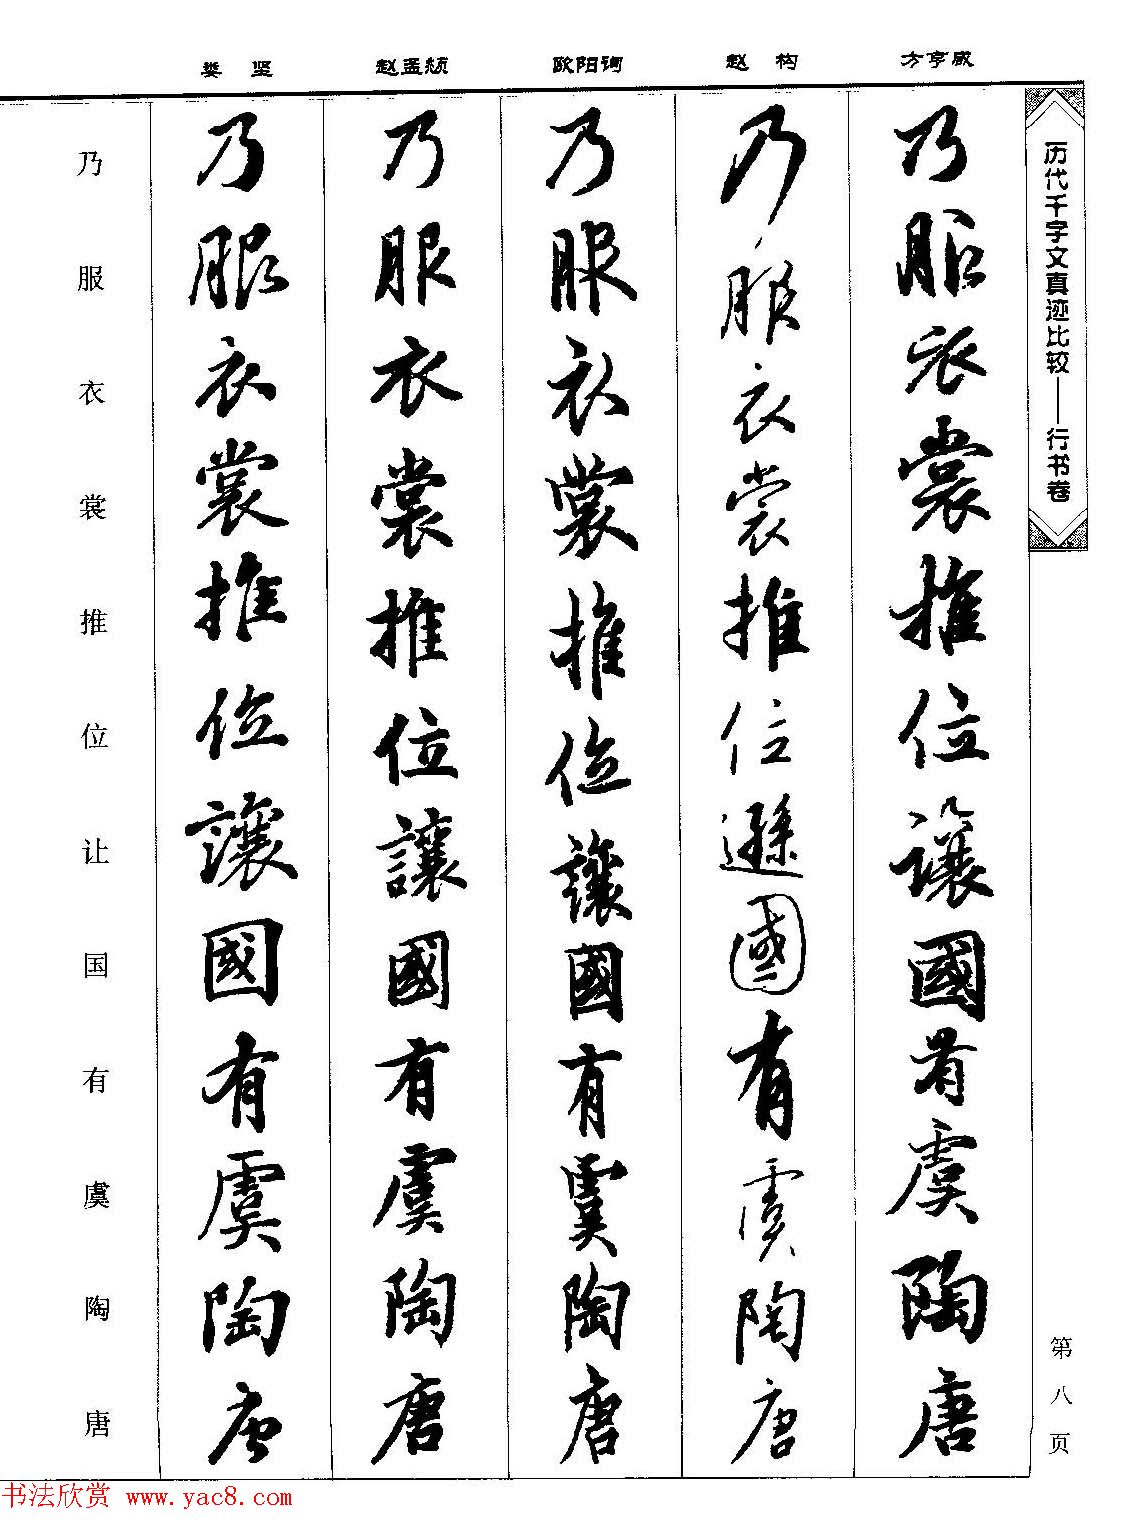 历代千字文真迹比较——行书卷
第八页
方亨咸
乃服衣裳推位讓國有虞陶唐
赵构
乃服衣裳推位遜國有虞陶唐
欧阳询
乃服衣裳推位讓國有虞陶唐
赵孟頫
乃服衣裳推位讓國有虞陶唐
娄坚
乃服衣裳推位讓國有虞陶唐
乃服衣裳推位让国有虞陶唐
书法欣赏 www.yac8.com